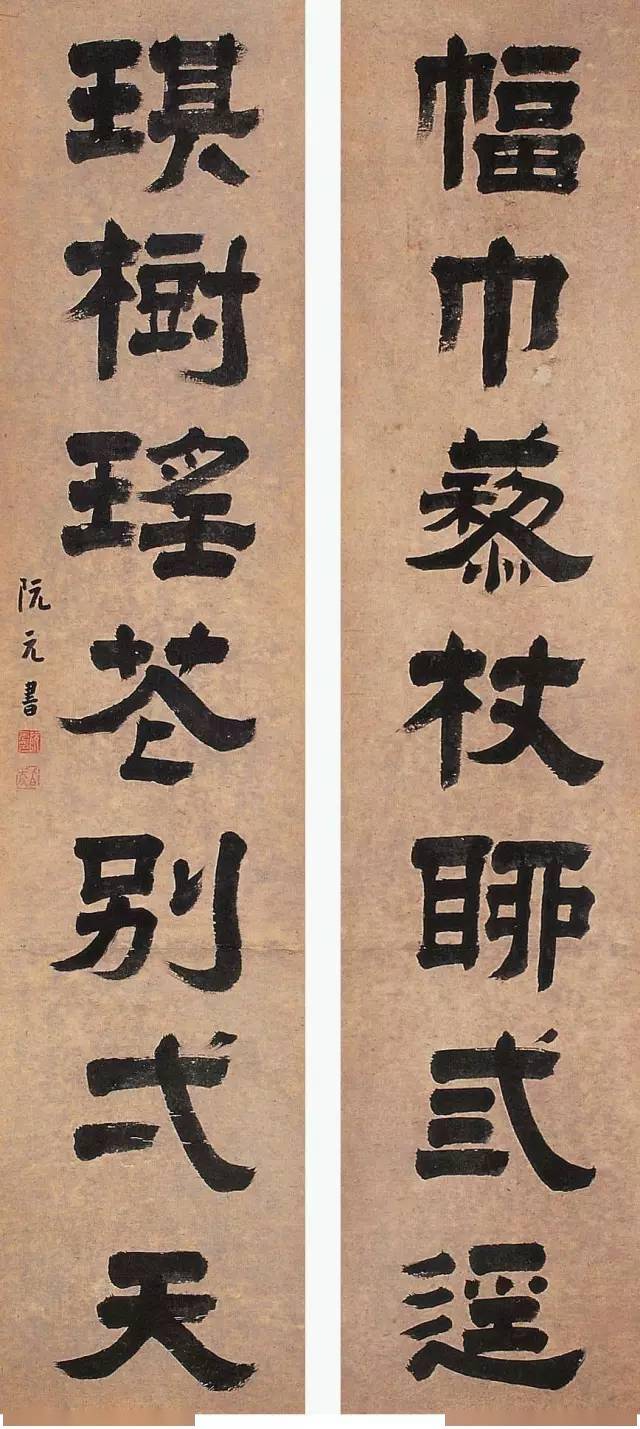 幅巾藜杖聊弎逕
琪樹瑤花別弌天
阮元書